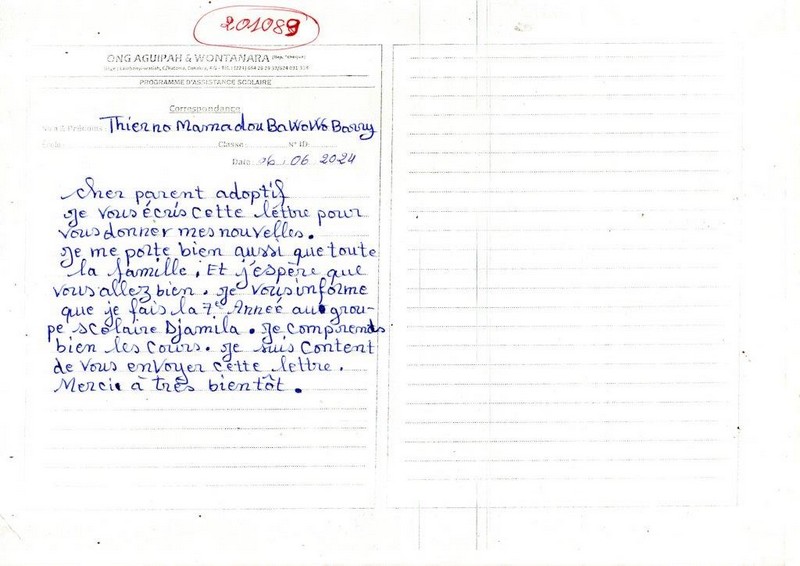 201089
ONG AGUIPAH & WONTANARA
PROGRAMME D'ASSISTANCE SCOLAIRE
Correspondance
Nom & Prénoms Thierno Mamadou BaWoWo Barry
Classe N° ID
Date 06.06 2024
Cher parent adoptif
Je vous écris cette lettre pour
vous donner mes nouvelles.
Je me porte bien aussi que toute
la famille, Et j'espère que
vous allez bien. Je vous informe
que je fais la 7e Année au grou-
pe scolaire Djamila. Je comprends
bien les cours. Je suis content
de vous envoyer cette lettre.
Mercie à très bientôt.